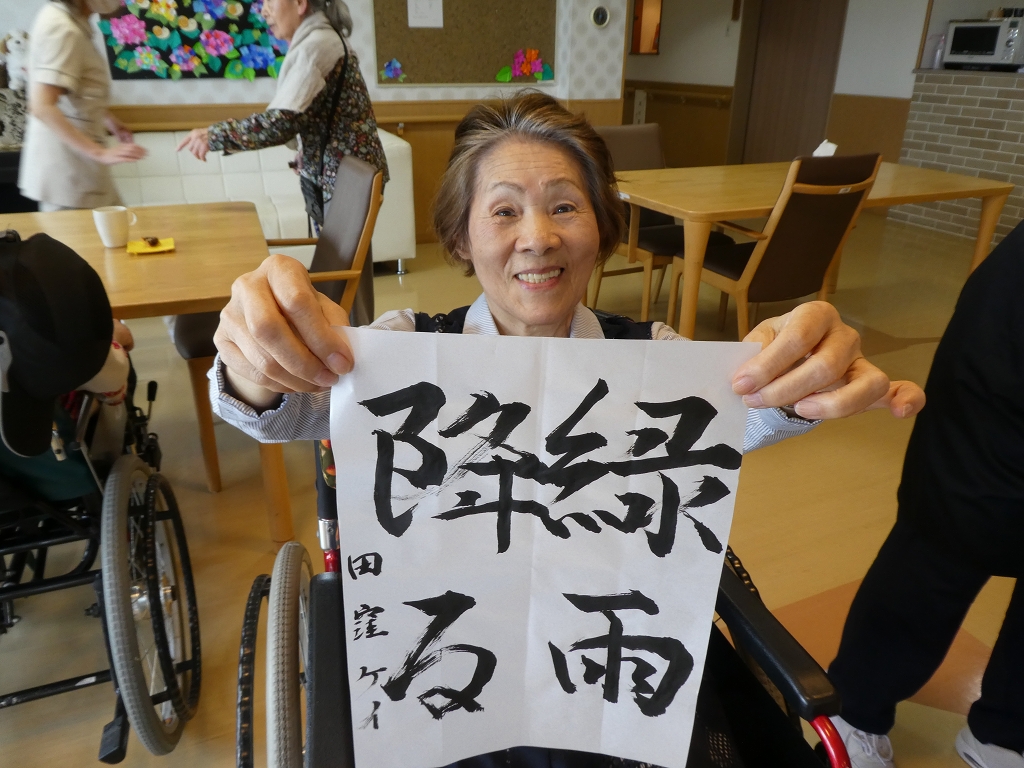 緑雨
降る
田窪ケイ